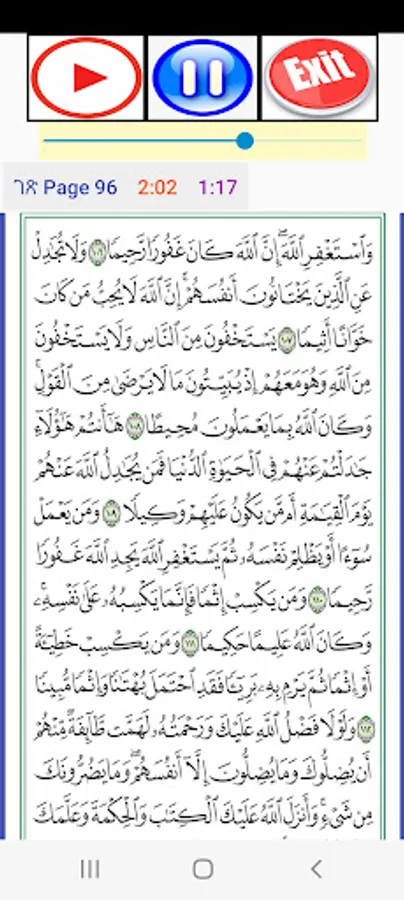 Exit
ገጽ Page 96 2:02 1:17
وَٱسْتَغْفِرِ ٱللَّهَ ۖ إِنَّ ٱللَّهَ كَانَ غَفُورًا رَّحِيمًا ١٠٦ وَلَا تُجَٰدِلْ
عَنِ ٱلَّذِينَ يَخْتَانُونَ أَنفُسَهُمْ ۚ إِنَّ ٱللَّهَ لَا يُحِبُّ مَن كَانَ
خَوَّانًا أَثِيمًا ١٠٧ يَسْتَخْفُونَ مِنَ ٱلنَّاسِ وَلَا يَسْتَخْفُونَ
مِنَ ٱللَّهِ وَهُوَ مَعَهُمْ إِذْ يُبَيِّتُونَ مَا لَا يَرْضَىٰ مِنَ ٱلْقَوْلِ ۚ
وَكَانَ ٱللَّهُ بِمَا يَعْمَلُونَ مُحِيطًا ١٠٨ هَٰٓأَنتُمْ هَٰٓؤُلَآءِ
جَٰدَلْتُمْ عَنْهُمْ فِى ٱلْحَيَوٰةِ ٱلدُّنْيَا فَمَن يُجَٰدِلُ ٱللَّهَ عَنْهُمْ
يَوْمَ ٱلْقِيَٰمَةِ أَم مَّن يَكُونُ عَلَيْهِمْ وَكِيلًا ١٠٩ وَمَن يَعْمَلْ
سُوٓءًا أَوْ يَظْلِمْ نَفْسَهُۥ ثُمَّ يَسْتَغْفِرِ ٱللَّهَ يَجِدِ ٱللَّهَ غَفُورًا
رَّحِيمًا ١١٠ وَمَن يَكْسِبْ إِثْمًا فَإِنَّمَا يَكْسِبُهُۥ عَلَىٰ نَفْسِهِۦ ۚ
وَكَانَ ٱللَّهُ عَلِيمًا حَكِيمًا ١١١ وَمَن يَكْسِبْ خَطِيٓـَٔةً
أَوْ إِثْمًا ثُمَّ يَرْمِ بِهِۦ بَرِيٓـًٔا فَقَدِ ٱحْتَمَلَ بُهْتَٰنًا وَإِثْمًا مُّبِينًا
١١٢ وَلَوْلَا فَضْلُ ٱللَّهِ عَلَيْكَ وَرَحْمَتُهُۥ لَهَمَّت طَّآئِفَةٌ مِّنْهُمْ
أَن يُضِلُّوكَ وَمَا يُضِلُّونَ إِلَّآ أَنفُسَهُمْ ۖ وَمَا يَضُرُّونَكَ
مِن شَىْءٍ ۚ وَأَنزَلَ ٱللَّهُ عَلَيْكَ ٱلْكِتَٰبَ وَٱلْحِكْمَةَ وَعَلَّمَكَ